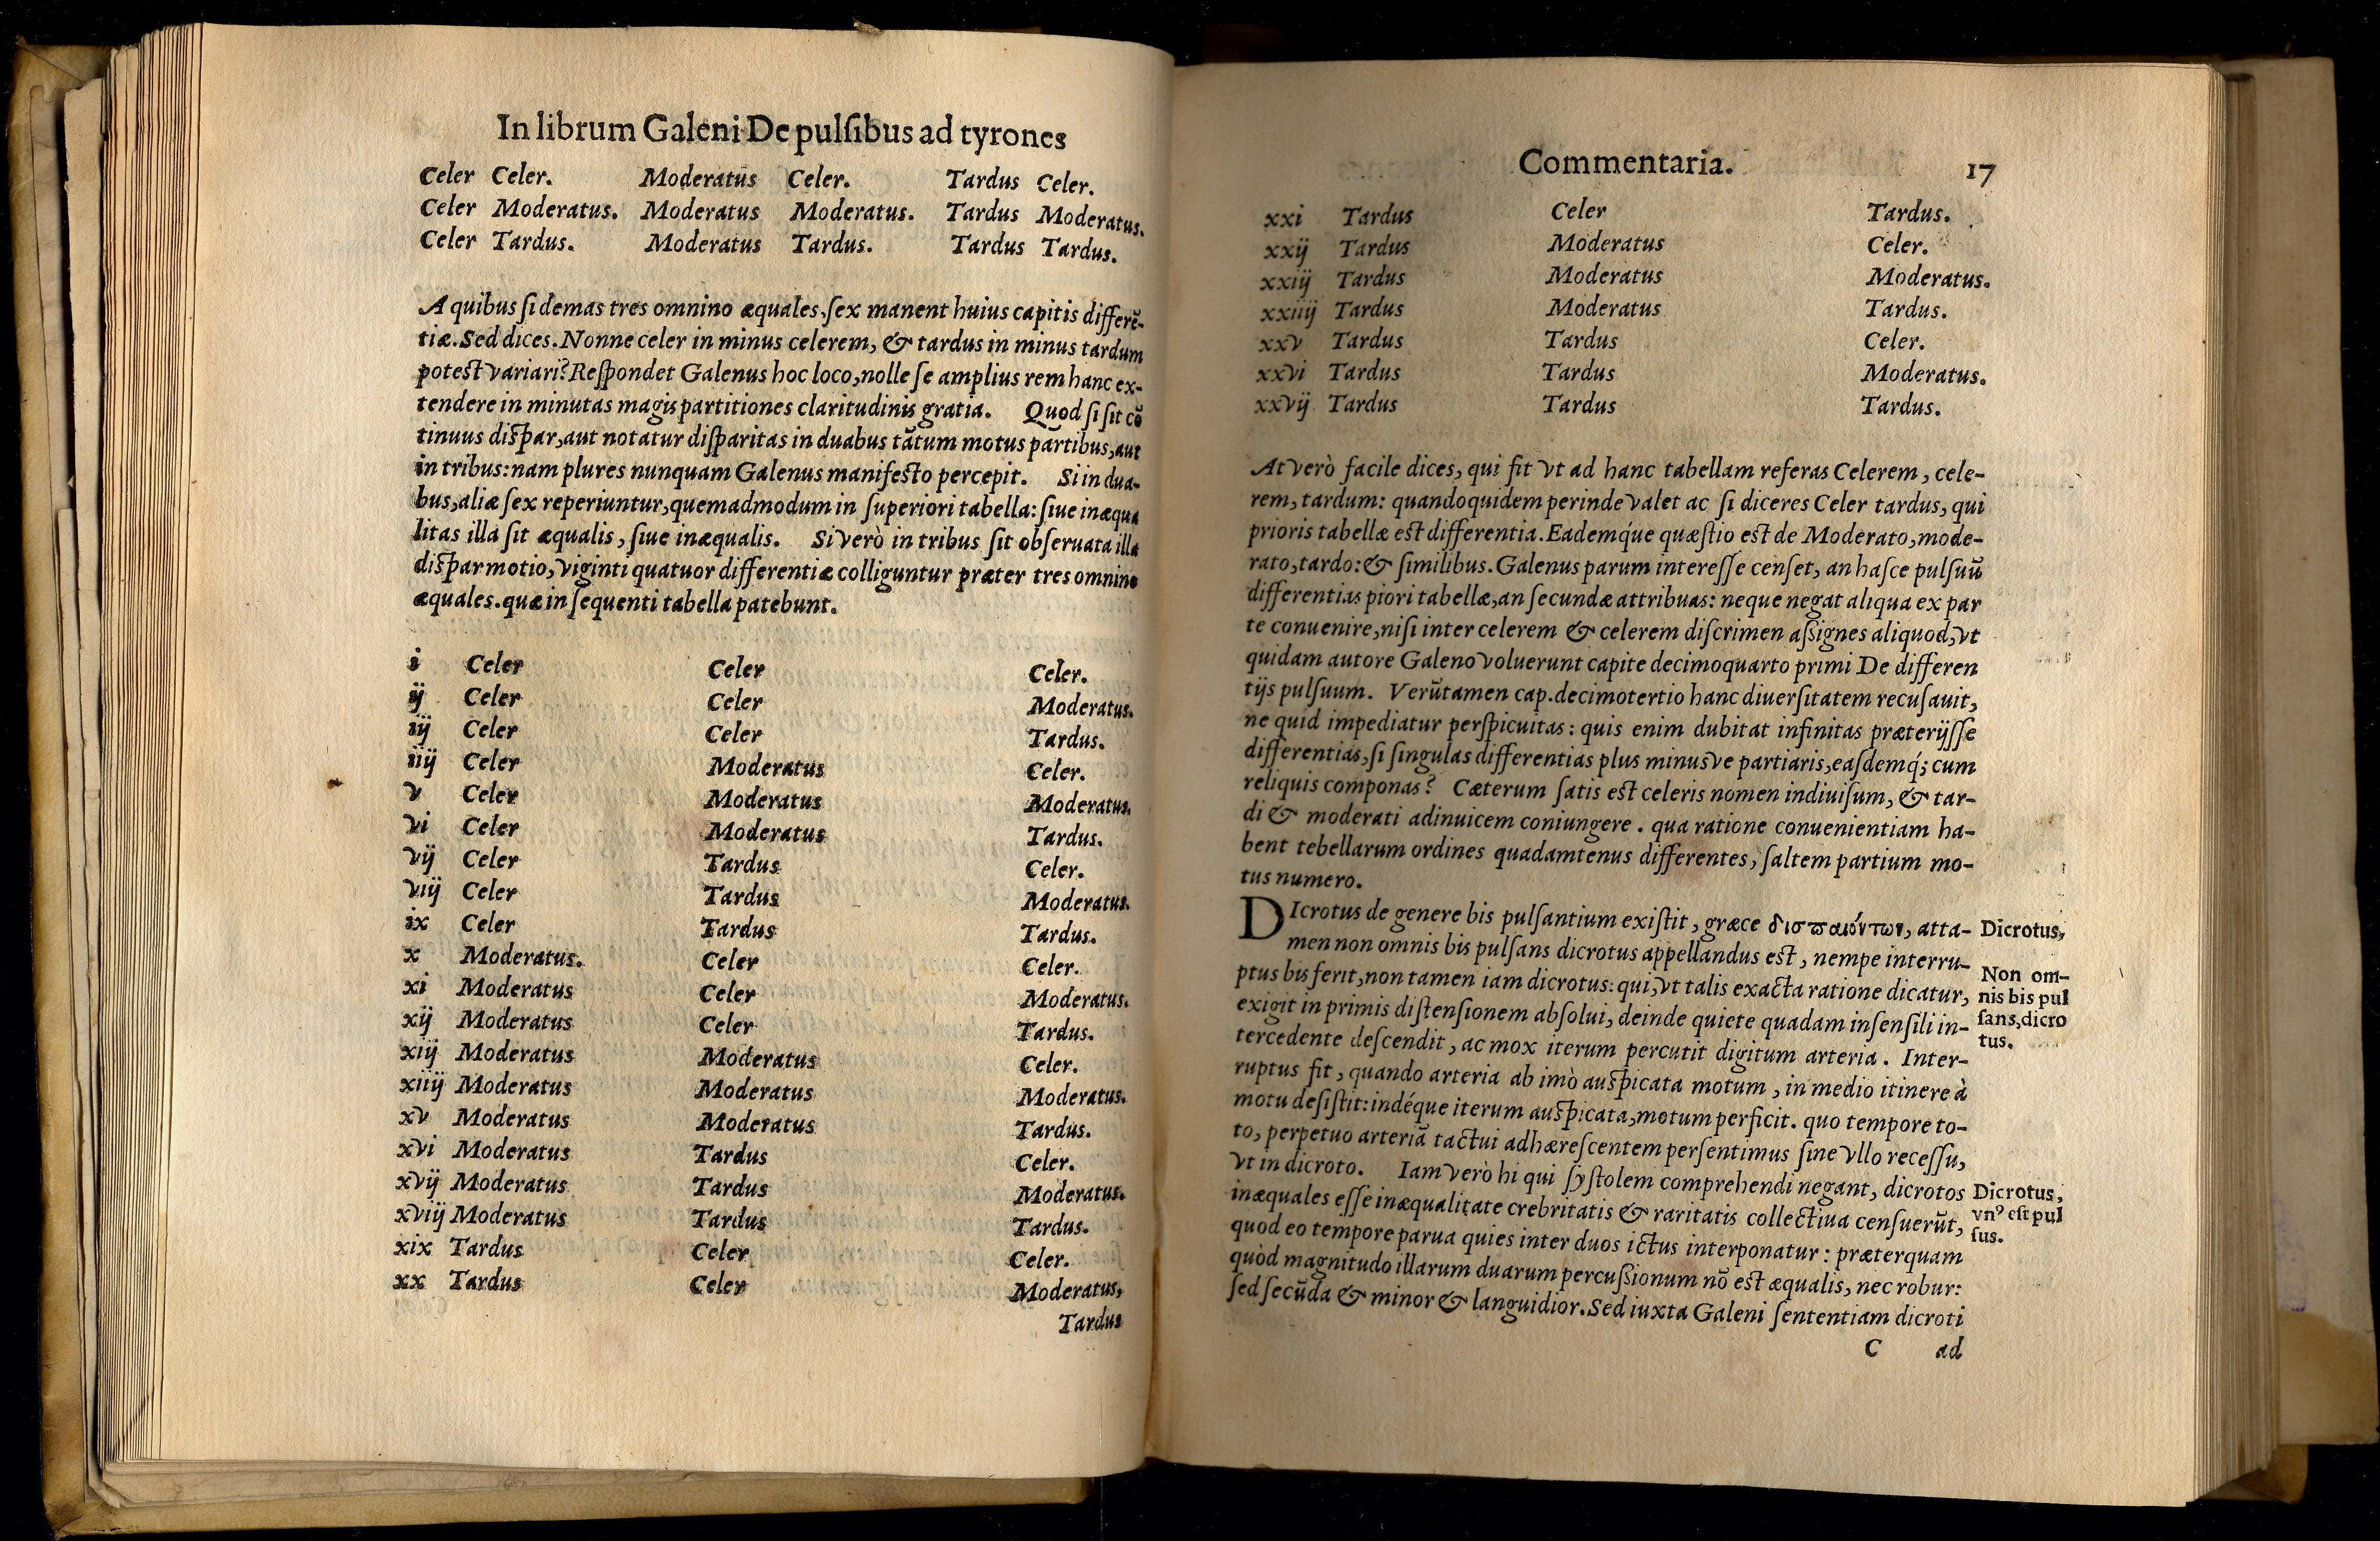 In librum Galeni De pulſibus ad tyrones
Celer Celer. Moderatus Celer. Tardus Celer.
Celer Moderatus. Moderatus Moderatus. Tardus Moderatus.
Celer Tardus. Moderatus Tardus. Tardus Tardus.
A quibus ſi demas tres omnino æquales, ſex manent huius capitis differē-
tiæ. Sed dices. Nonne celer in minus celerem, & tardus in minus tardum
poteſt variari? Reſpondet Galenus hoc loco, nolle ſe amplius rem hanc ex-
tendere in minutas magis partitiones claritudinis gratia. Quod ſi ſit cō
tinuus diſpar, aut notatur diſparitas in duabus tātum motus partibus, aut
in tribus: nam plures nunquam Galenus manifeſto percepit. Si in dua-
bus, aliæ ſex reperiuntur, quemadmodum in ſuperiori tabella: ſiue inæqua
litas illa ſit æqualis, ſiue inæqualis. Si verò in tribus ſit obſeruata illa
diſpar motio, viginti quatuor differentiæ colliguntur præter tres omnino
æquales. quæ in ſequenti tabella patebunt.
i Celer Celer Celer.
ij Celer Celer Moderatus.
iij Celer Celer Tardus.
iiij Celer Moderatus Celer.
v Celer Moderatus Moderatus.
vi Celer Moderatus Tardus.
vij Celer Tardus Celer.
viij Celer Tardus Moderatus.
ix Celer Tardus Tardus.
x Moderatus. Celer Celer.
xi Moderatus Celer Moderatus.
xij Moderatus Celer Tardus.
xiij Moderatus Moderatus Celer.
xiiij Moderatus Moderatus Moderatus.
xv Moderatus Moderatus Tardus.
xvi Moderatus Tardus Celer.
xvij Moderatus Tardus Moderatus.
xviij Moderatus Tardus Tardus.
xix Tardus Celer Celer.
xx Tardus Celer Moderatus,
Tardus
Commentaria. 17
xxi Tardus Celer Tardus.
xxij Tardus Moderatus Celer.
xxiij Tardus Moderatus Moderatus.
xxiiij Tardus Moderatus Tardus.
xxv Tardus Tardus Celer.
xxvi Tardus Tardus Moderatus.
xxvij Tardus Tardus Tardus.
At verò facile dices, qui fit vt ad hanc tabellam referas Celerem, cele-
rem, tardum: quandoquidem perinde valet ac ſi diceres Celer tardus, qui
prioris tabellæ eſt differentia. Eademq́ue quæſtio eſt de Moderato, mode-
rato, tardo: & ſimilibus. Galenus parum intereſſe cenſet, an haſce pulſuū
differentias piori tabellæ, an ſecundæ attribuas: neque negat aliqua ex par
te conuenire, niſi inter celerem & celerem diſcrimen aſsignes aliquod, vt
quidam autore Galeno voluerunt capite decimoquarto primi De differen
tijs pulſuum. Verūtamen cap. decimotertio hanc diuerſitatem recuſauit,
ne quid impediatur perſpicuitas: quis enim dubitat infinitas præterijſſe
differentias, ſi ſingulas differentias plus minusve partiaris, eaſdemq́; cum
reliquis componas? Cæterum ſatis eſt celeris nomen indiuiſum, & tar-
di & moderati adinuicem coniungere. qua ratione conuenientiam ha-
bent tebellarum ordines quadamtenus differentes, ſaltem partium mo-
tus numero.
DIcrotus de genere bis pulſantium exiſtit, græce δισπαιόντων, atta-
men non omnis bis pulſans dicrotus appellandus eſt, nempe interru-
ptus bis ferit, non tamen iam dicrotus: qui, vt talis exacta ratione dicatur,
exigit in primis diſtenſionem abſolui, deinde quiete quadam inſenſili in-
tercedente deſcendit, ac mox iterum percutit digitum arteria. Inter-
ruptus fit, quando arteria ab imò auſpicata motum, in medio itinere à
motu deſiſtit: indéque iterum auſpicata, motum perficit. quo tempore to-
to, perpetuo arteriā tactui adhæreſcentem perſentimus ſine vllo receſſu,
vt in dicroto. Iam verò hi qui ſyſtolem comprehendi negant, dicrotos
inæquales eſſe inæqualitate crebritatis & raritatis collectiua cenſuerūt,
quod eo tempore parua quies inter duos ictus interponatur: præterquam
quòd magnitudo illarum duarum percuſsionum nō eſt æqualis, nec robur:
ſed ſecūda & minor & languidior. Sed iuxta Galeni ſententiam dicroti
C ad
Dicrotus,
Non om-
nis bis pul
ſans, dicro
tus.
Dicrotus,
vn⁹ eſt pul
ſus.